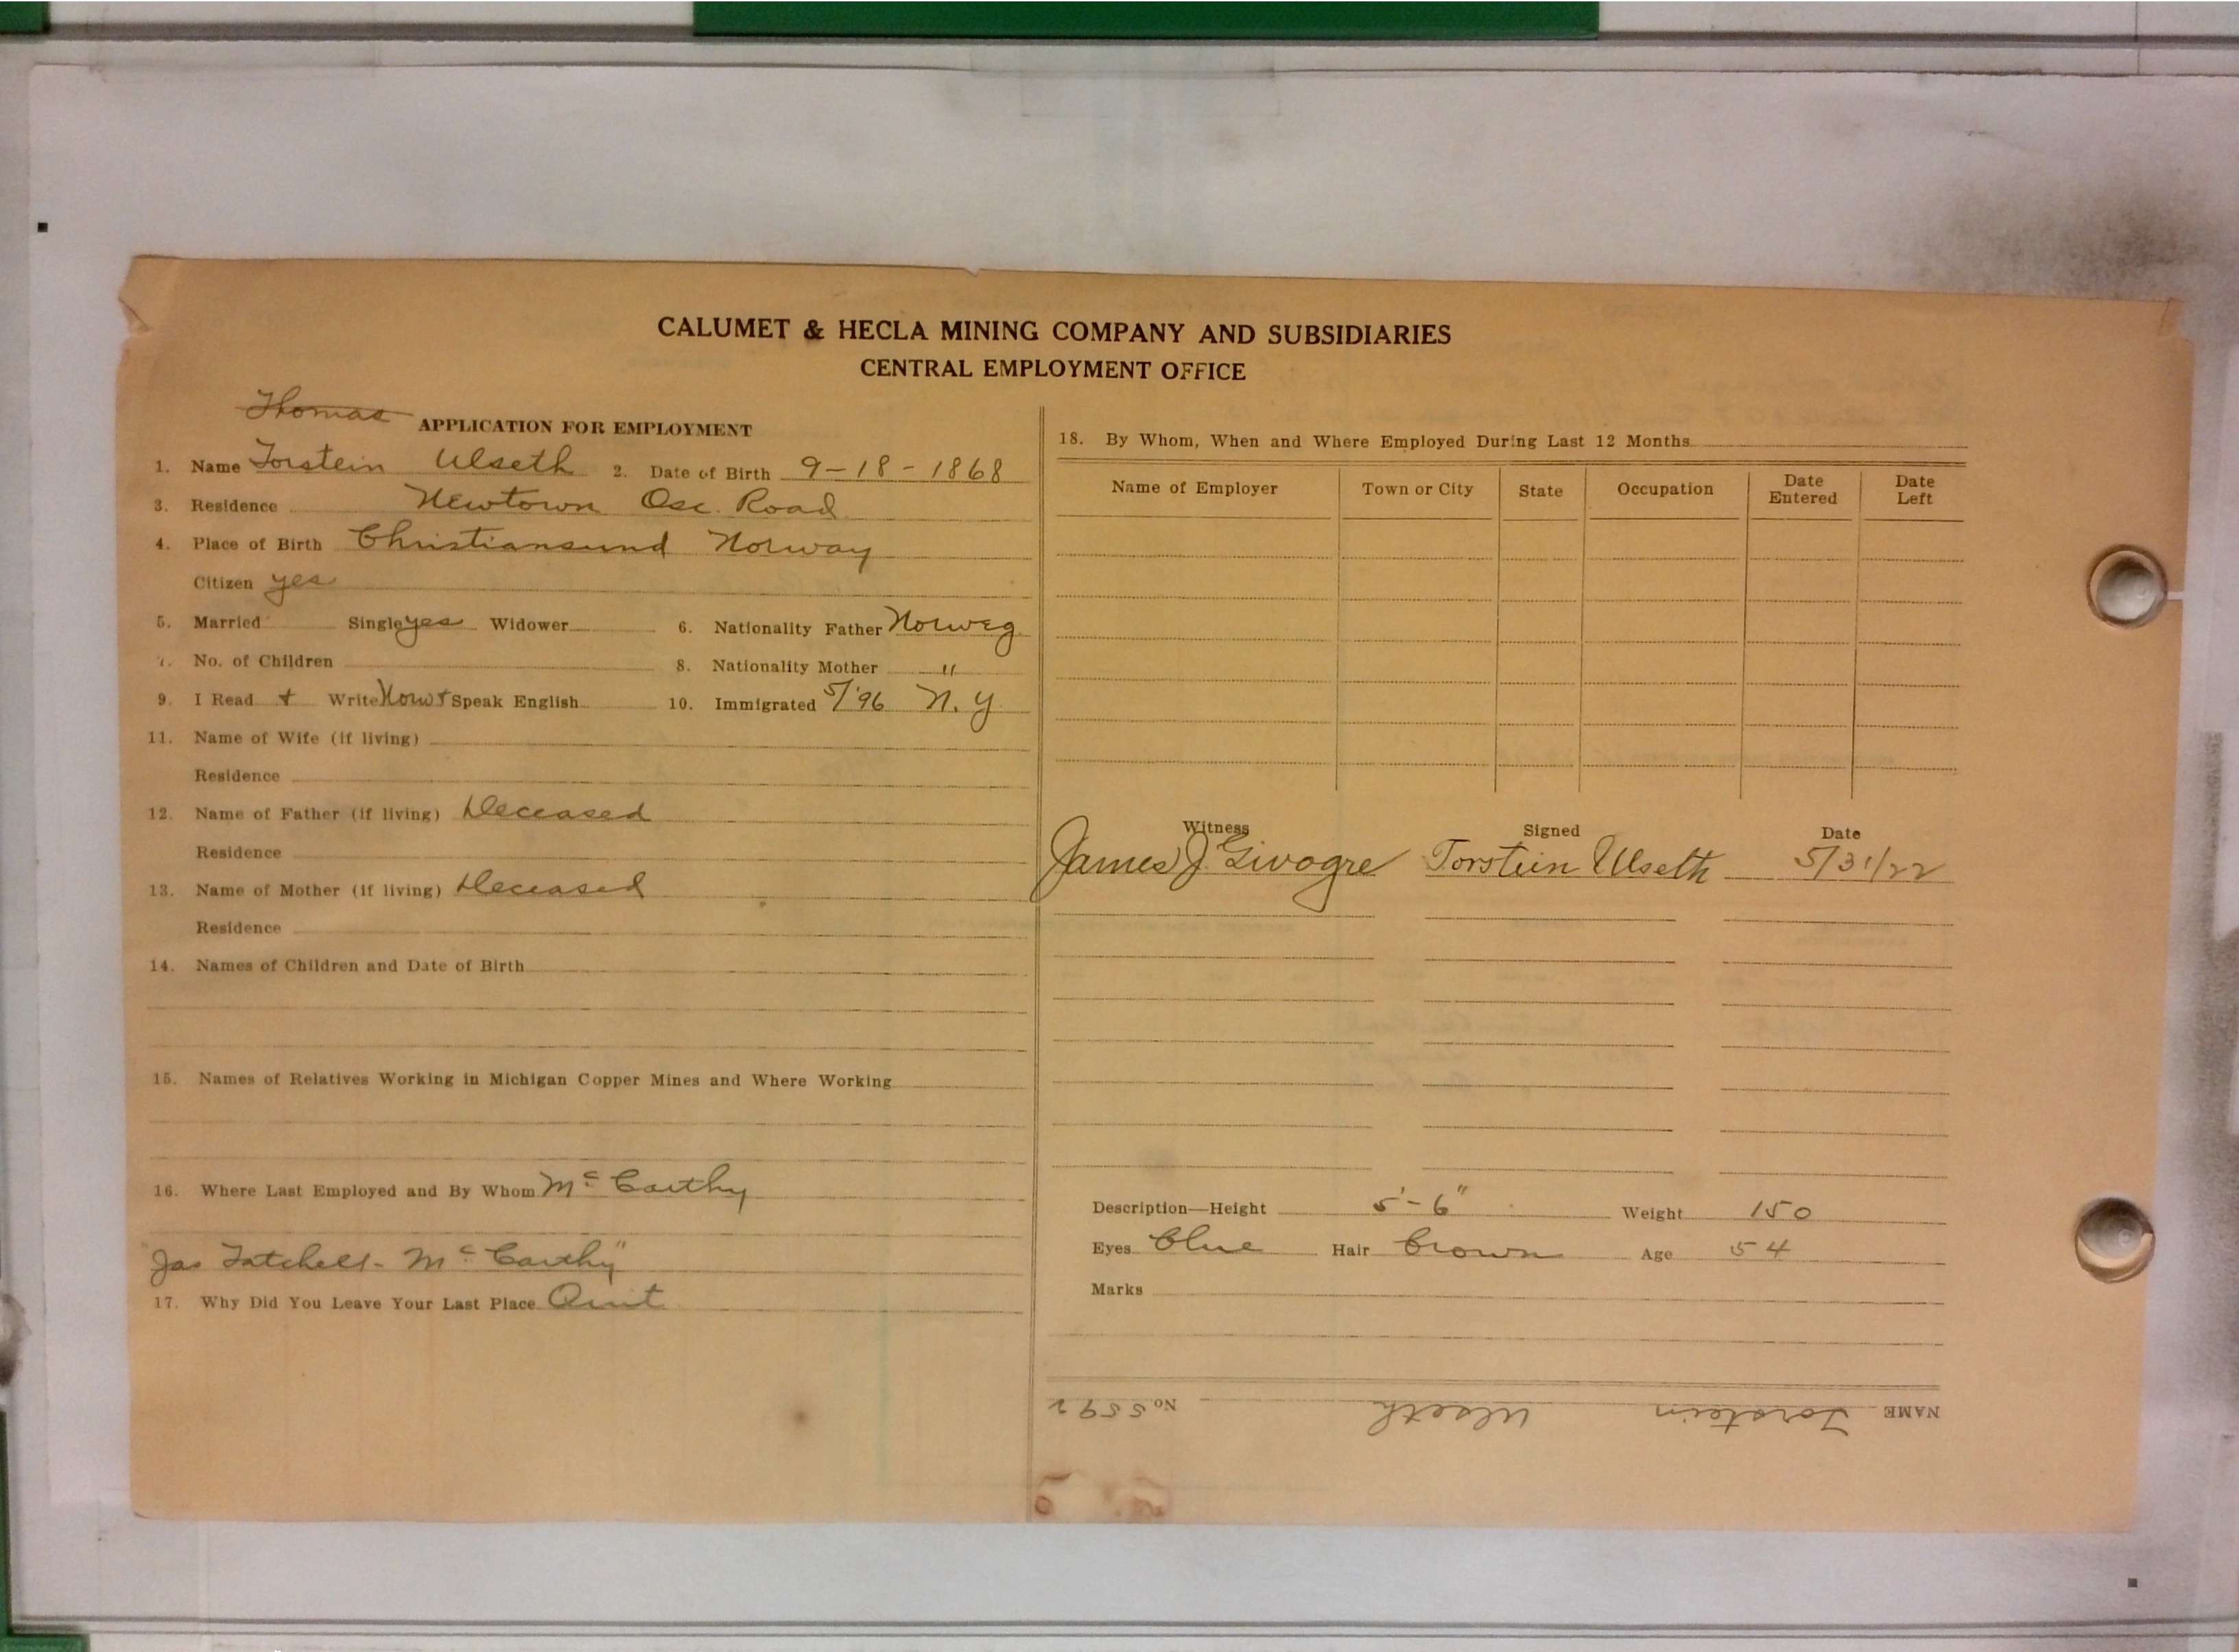 CALUMET & HECLA MINING COMPANY AND SUBSIDIARIES
CENTRAL EMPLOYMENT OFFICE
Thomas
APPLICATION FOR EMPLOYMENT
1. Name Torstein Ulseth 2. Date of Birth 9-18-1868
3. Residence Newtown Osc. Road
4. Place of Birth Christiansund Norway
Citizen yes
5. Married Single yes Widower 6. Nationality Father Norweg
7. No. of Children 8. Nationality Mother "
9. I Read + Write Now + Speak English 10. Immigrated 5/'96 N.Y
11. Name of Wife (if living)
Residence
12. Name of Father (if living) Deceased
Residence
13. Name of Mother (if living) Deceased
Residence
14. Names of Children and Date of Birth
15. Names of Relatives Working in Michigan Copper Mines and Where Working
16. Where Last Employed and By Whom Mc Carthy
"Jas Tatchell - Mc Carthy"
17. Why Did You Leave Your Last Place Quit
18. By Whom, When and Where Employed During Last 12 Months
Name of Employer Town or City State Occupation Date Entered Date Left
Witness Signed Date
James J Torstein Ulseth 5/31/22
Description—Height 5'-6" Weight 150
Eyes Blue Hair Brown Age 54
Marks
NAME Torstein Ulseth No. 5592